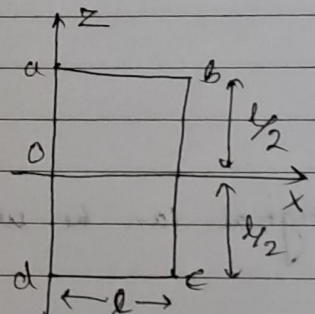 Z
a
B
l/2
O
X
l/2
d
l
c